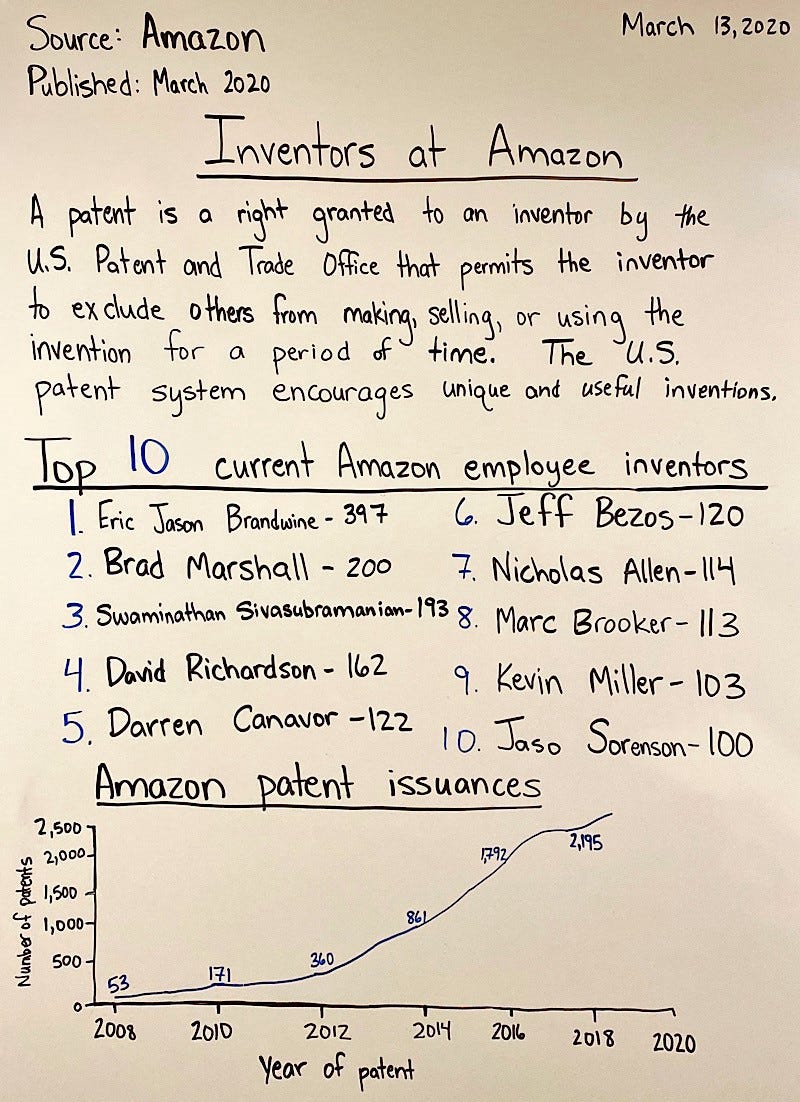 Source: Amazon
March 13, 2020
Published: March 2020
Inventors at Amazon
A patent is a right granted to an inventor by the
U.S. Patent and Trade Office that permits the inventor
to exclude others from making, selling, or using the
invention for a period of time. The U.S.
patent system encourages unique and useful inventions.
Top 10 current Amazon employee inventors
1. Eric Jason Brandwine - 397
2. Brad Marshall - 200
3. Swaminathan Sivasubramanian-193
4. David Richardson - 162
5. Darren Canavor -122
6. Jeff Bezos-120
7. Nicholas Allen-114
8. Marc Brooker- 113
9. Kevin Miller- 103
10. Jaso Sorenson-100
Amazon patent issuances
Number of patents
2,500
2,000
1,500
1,000
500
0
53
171
360
861
1,792
2,195
2008 2010 2012 2014 2016 2018 2020
Year of patent